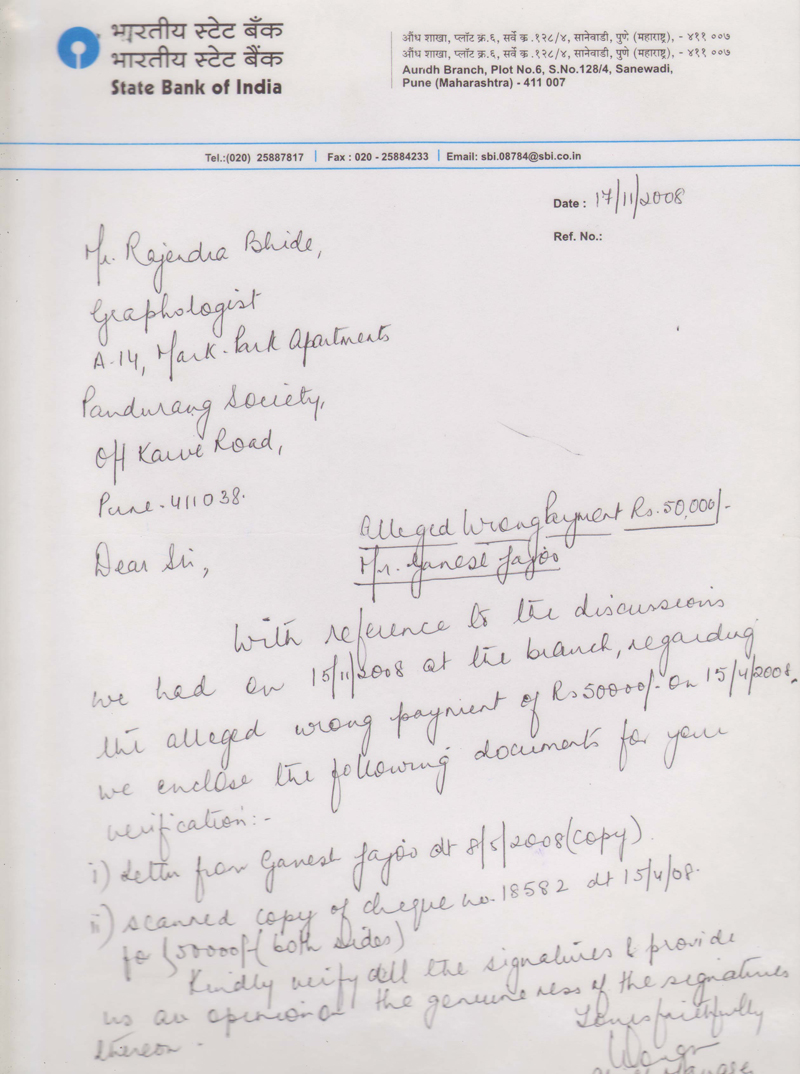 भारतीय स्टेट बँक
भारतीय स्टेट बैंक
State Bank of India
औंध शाखा, प्लॉट क्र.६, सर्वे क्र.१२८/४, सानेवाडी, पुणे (महाराष्ट्र), - ४११ ००७
औंध शाखा, प्लॉट क्र.६, सर्वे क्र.१२८/४, सानेवाडी, पुणे (महाराष्ट्र), - ४११ ००७
Aundh Branch, Plot No.6, S.No.128/4, Sanewadi,
Pune (Maharashtra) - 411 007
Tel.:(020) 25887817 | Fax : 020 - 25884233 | Email: sbi.08784@sbi.co.in
Date : 17/11/2008
Ref. No.:
Mr. Rajendra Bhide,
Graphologist
A-14, Mark-Park Apartments
Pandurang Society,
Off Karve Road,
Pune-411038.
Alleged Wrong Payment Rs.50,000/-
Mr. Ganesh Jajoo
Dear Sir,
With reference to the discussions
we had on 15/11/2008 at the branch, regarding
the alleged wrong payment of Rs 50000/- on 15/4/2008.
we enclose the following documents for your
verification:-
i) Letter from Ganesh Jajoo dt 8/5/2008 (copy)
ii) scanned copy of cheque no. 18582 dt 15/4/08.
for 50000/- (both sides)
Kindly verify all the signatures & provide
us an opinion on the genuineness of the signatures
thereon.
Yours faithfully
Manager